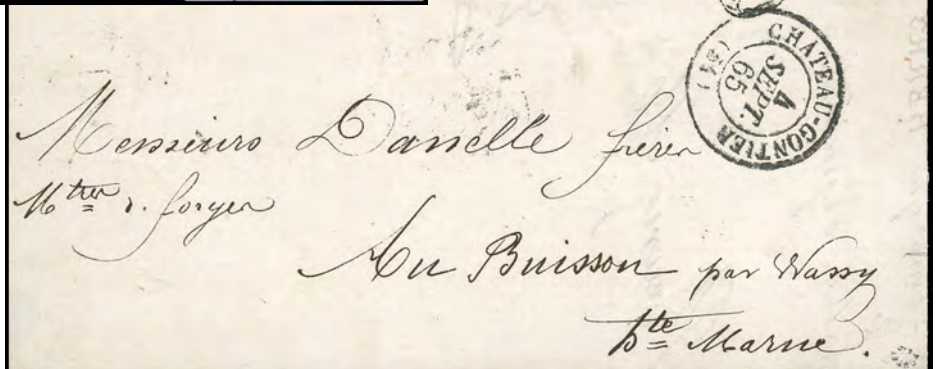 CHATEAU-GONTIER
4
SEPT.
65
Messieurs Danelle frères
Mtres d. forges
Au Buisson par Wassy
hte Marne.